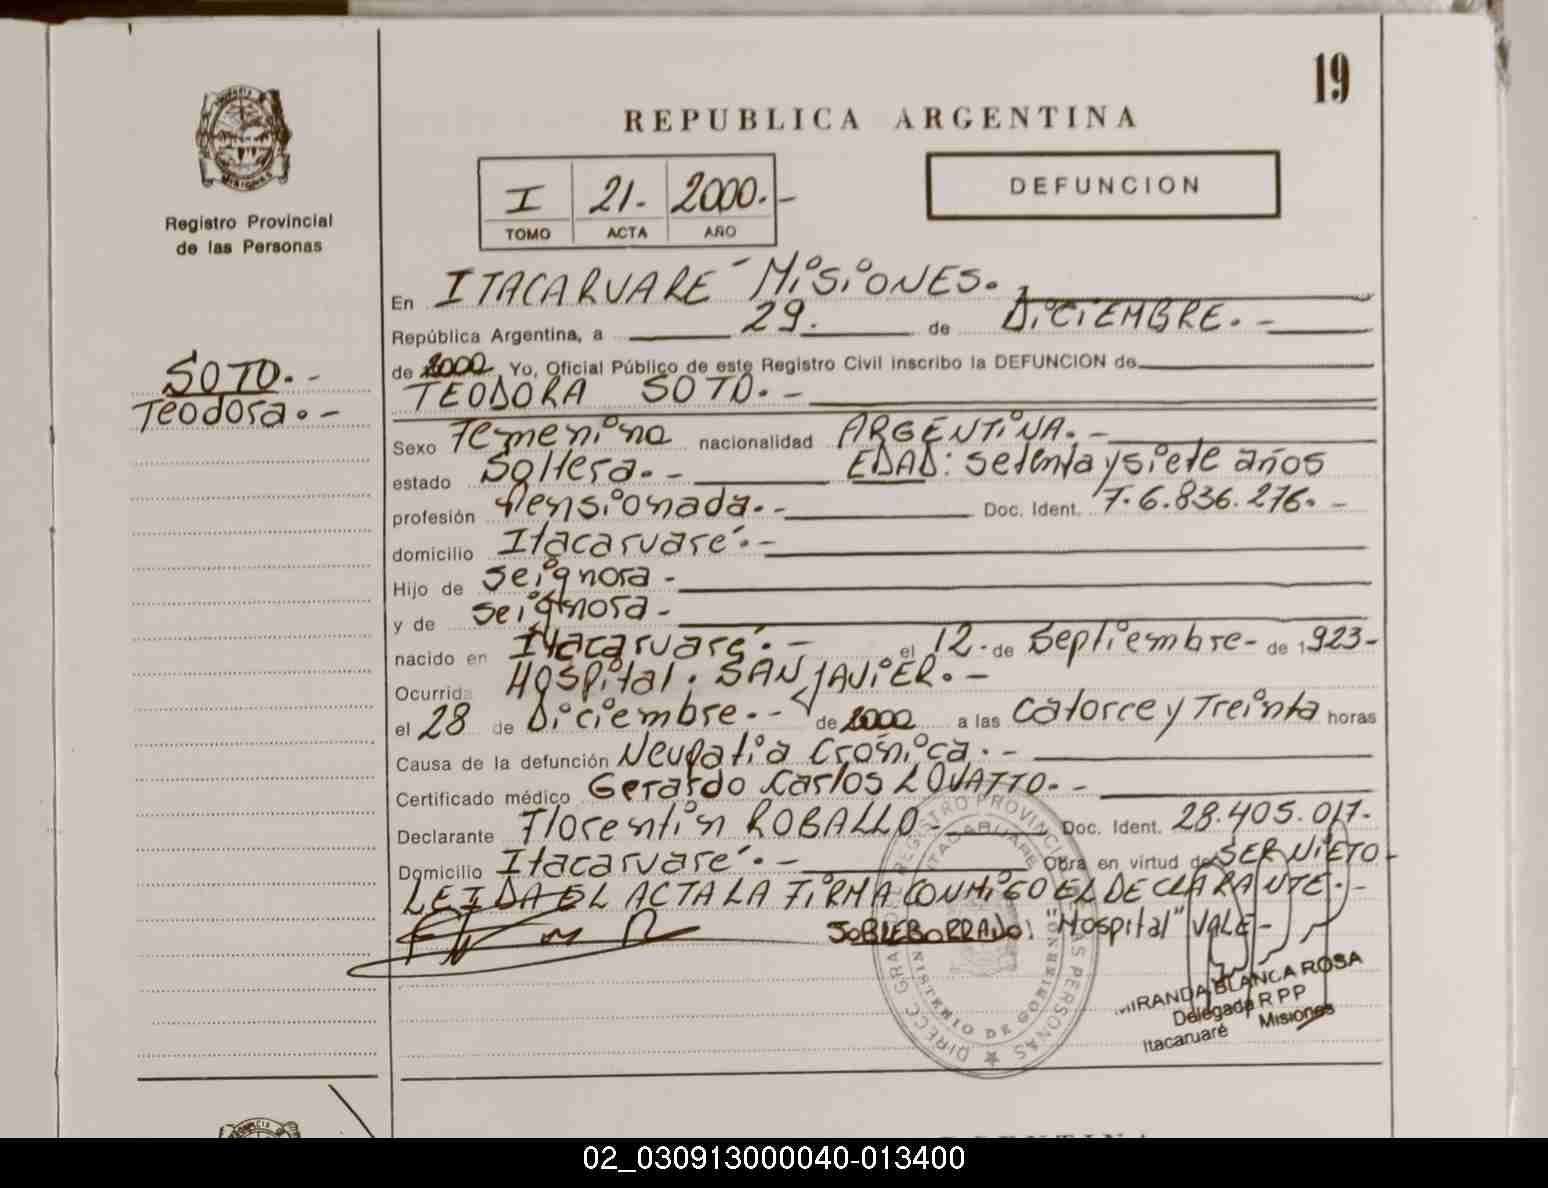 19
REPUBLICA ARGENTINA
MISIONES
Registro Provincial
de las Personas
I 21.- 2000.-
TOMO ACTA AÑO
DEFUNCION
SOTO.-
Teodora.-
En ITACARUARE´ MISIONES.
República Argentina, a 29. de DICIEMBRE.-
de 2000 Yo, Oficial Público de este Registro Civil inscribo la DEFUNCION de
TEODORA SOTO.-
Sexo Femenino nacionalidad ARGENTINA.-
estado Soltera.- EDAD: setenta y siete años
profesión Pensionada.- Doc. Ident. F.6.836.276.-
domicilio Itacaruaré.-
Hijo de Seignora -
y de Seignora -
nacido en Itacaruaré.- el 12.- de Septiembre- de 1923-
Ocurrida Hospital. SAN JAVIER.-
el 28 de Diciembre.- de 2000 a las Catorce y Treinta horas
Causa de la defunción Neupatia Cronica.-
Certificado médico Gerardo Carlos LOVATTO.-
Declarante Florentin ROBALLO- Doc. Ident. 28.405.017.-
Domicilio Itacaruaré.- Obra en virtud de SER NIETO-
LEIDA EL ACTA LA FIRMA CONMIGO EL DECLARANTE.-
SOBREBORRADO: "Hospital" VALE-
DIRECC. GRAL. DEL REGISTRO PROVINCIAL DE LAS PERSONAS
ITACARUARE
MINISTERIO DE GOBIERNO
MIRANDA BLANCA ROSA
Delegada R P P
Itacaruaré Misiones
02_030913000040-013400